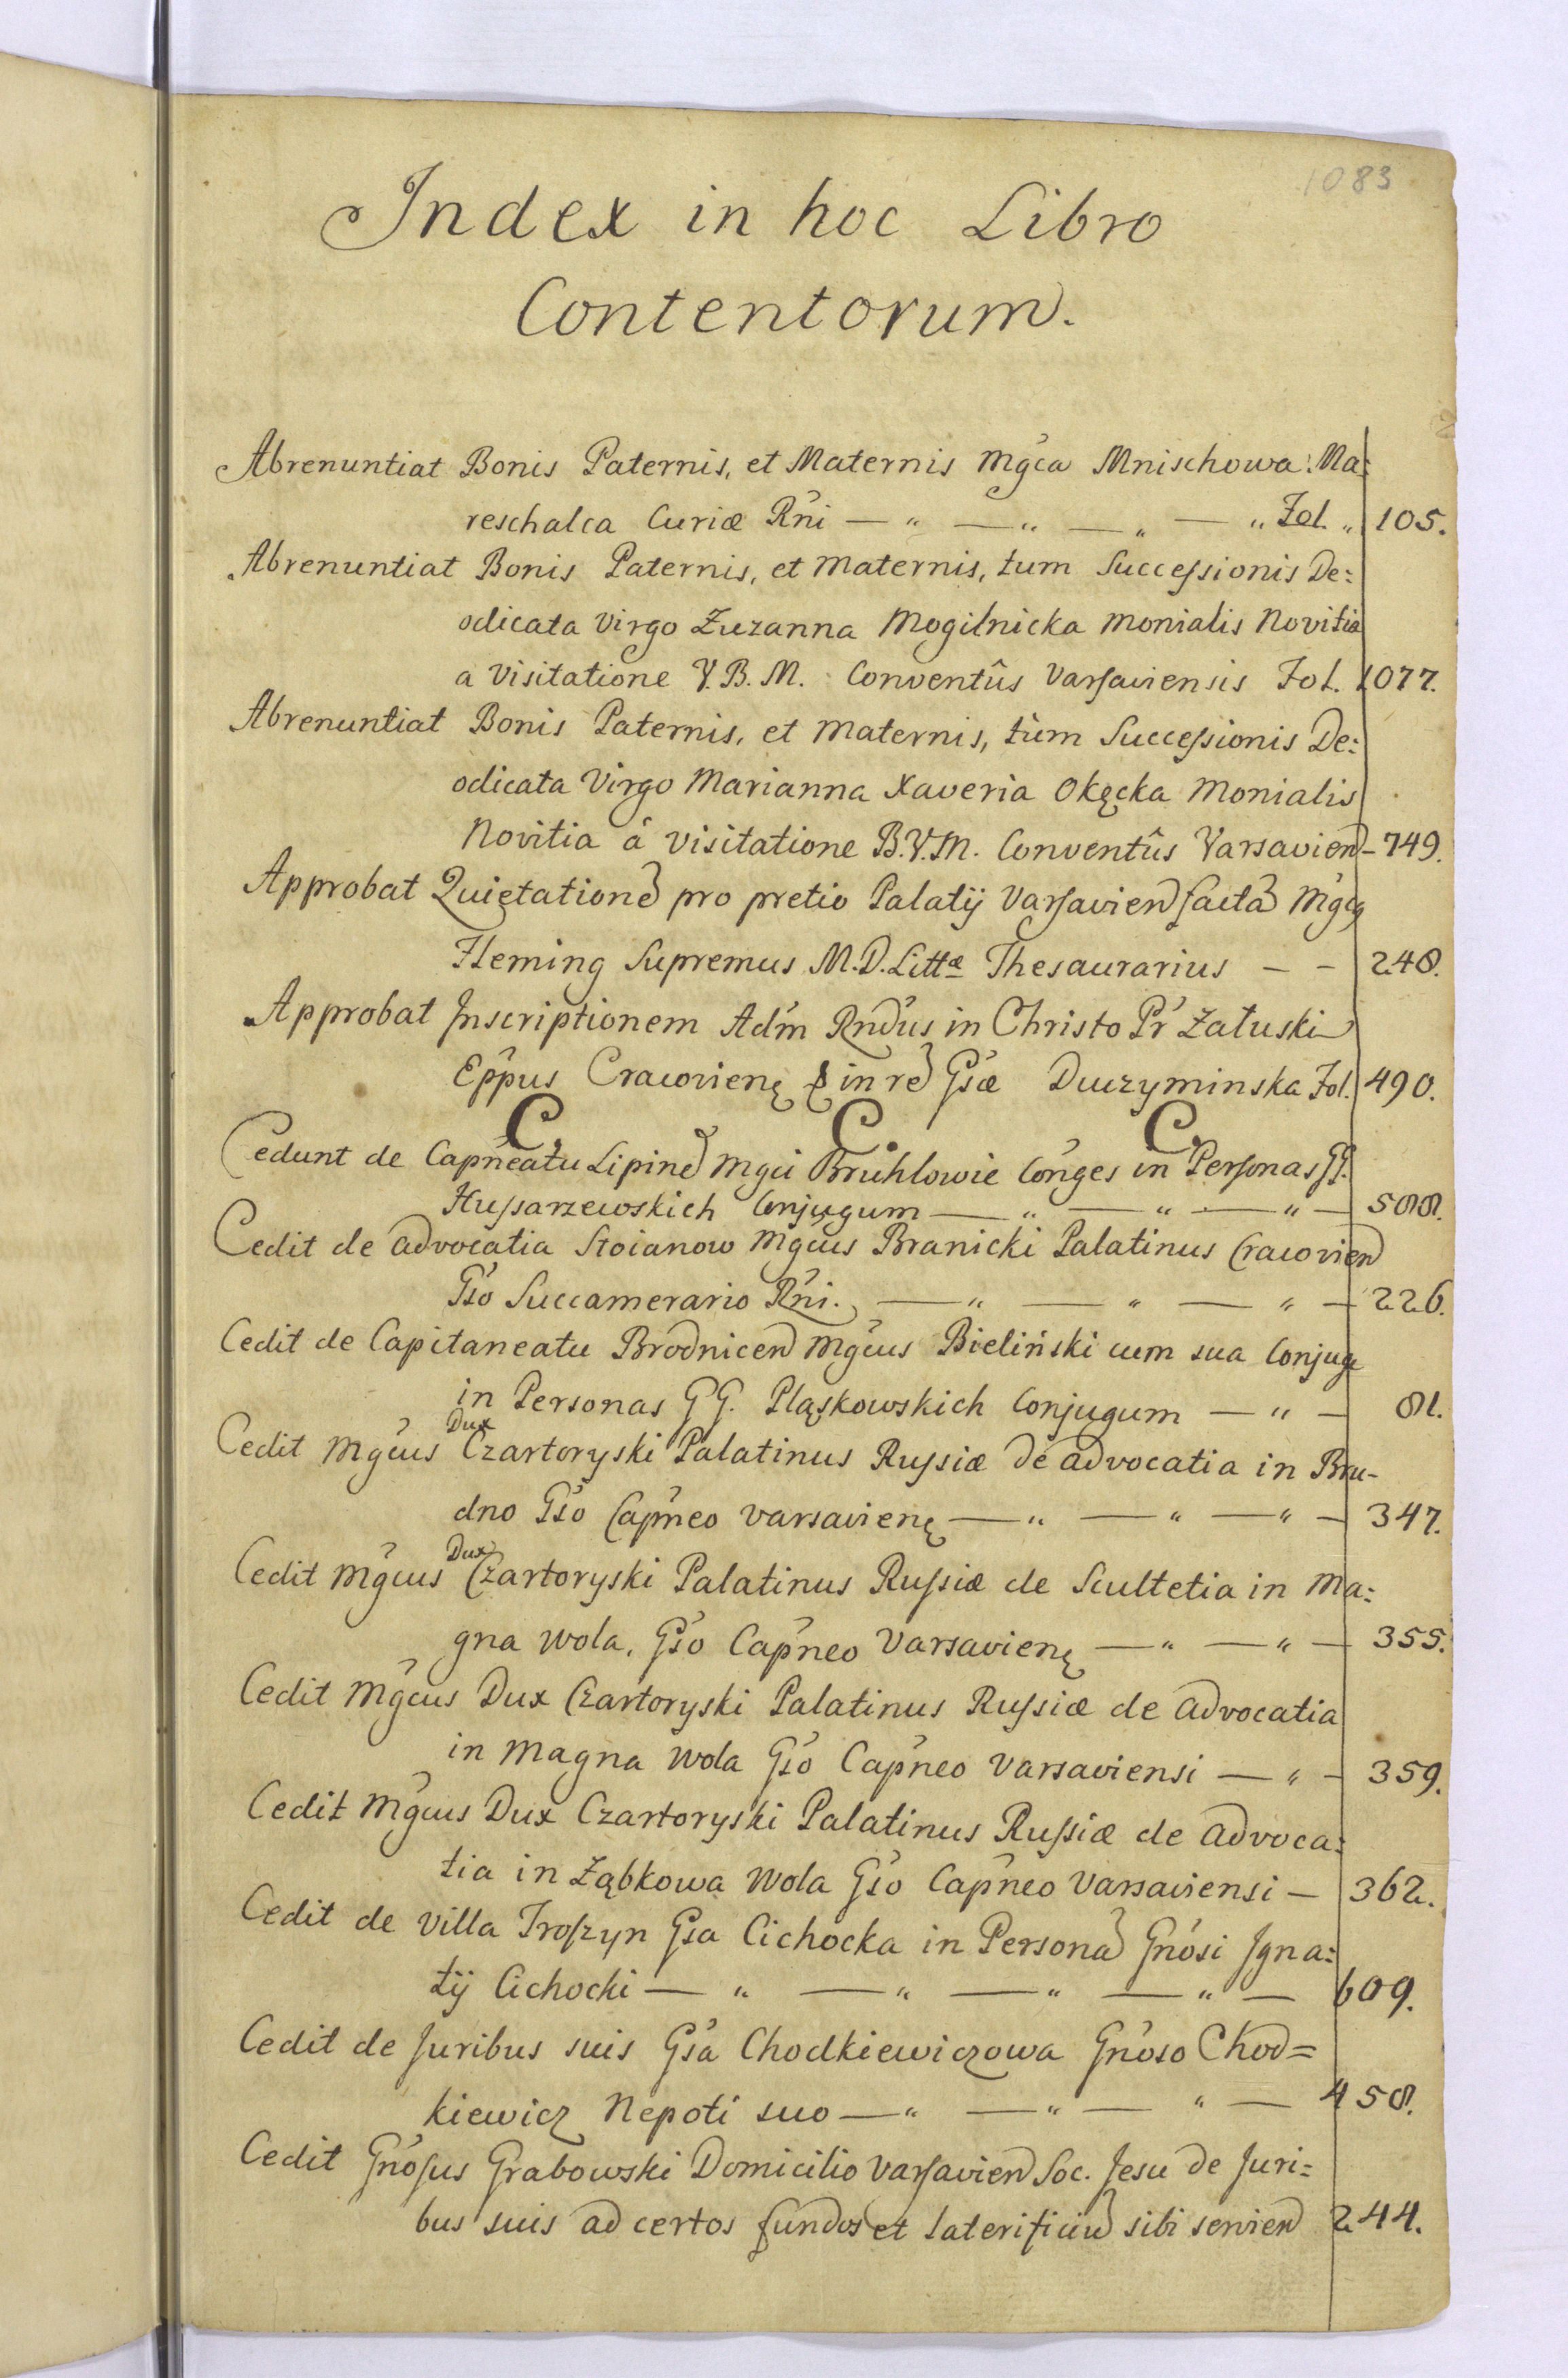 1083
Index in hoc Libro
Contentorum.
Abrenuntiat Bonis Paternis, et Maternis Mg̃ca Mnischowa Ma:
reschalca Curiæ Rñi — " — " — " — " Fol. " 105.
Abrenuntiat Bonis Paternis, et Maternis, tum Successionis De:
odicata Virgo Zuzanna Mogilnicka Monialis Novitia
a Visitatione V.B.M. Conventûs Varsaviensis Fol. 1077.
Abrenuntiat Bonis Paternis, et Maternis, tùm Successionis De:
odicata Virgo Marianna Xaveria Okęcka Monialis
Novitia à Visitatione B.V.M. Conventûs Varsavien — 749.
Approbat Quietatione pro pretio Palatij Varsavien facta Mg̃cg
Fleming Supremus M.D. Littæ Thesaurarius — — 248.
Approbat Inscriptionem Adm̃ Rndũs in Christo Pr̃ Załuski
Epp̃us Cracovienę in re Gs̃æ Duczyminska Fol. 490.
C. C. C.
Cedunt de Capñeatu Lipine Mgci Bruhlowie Con̄ges in Personas GG.
Hussarzewskich Conjugum — " — " — " — 588.
Cedit de Advocatia Stoianow Mg̃cus Branicki Palatinus Cracovien
Gs̃o Succamerario Rñi. — " — " — " — 226.
Cedit de Capitaneatu Brodnicen Mg̃cus Bieliński cum sua Conjuge
in Personas GG. Pląskowskich Conjugum — " — 81.
Cedit Mg̃cus Dux Czartoryski Palatinus Russiæ de Advocatia in Bru-
dno Gs̃o Capñeo Varsavienę — " — " — " — 347.
Cedit Mg̃cus Dux Czartoryski Palatinus Russiæ de Scultetia in Ma:
gna Wola, Gs̃o Capñeo Varsavienę — " — " — 355.
Cedit Mg̃cus Dux Czartoryski Palatinus Russiæ de Advocatia
in Magna Wola Gs̃o Capñeo Varsaviensi — " — 359.
Cedit Mg̃cus Dux Czartoryski Palatinus Russiæ de Advoca:
tia in Ząbkowa Wola Gs̃o Capñeo Varsaviensi — 362.
Cedit de Villa Troszyn Gsa Cichocka in Persona Gñosi Igna:
tij Cichocki — " — " — " — " — 609.
Cedit de Juribus suis Gs̃a Chodkiewiczowa Gñoso Chod=
kiewicz Nepoti suo — " — " — " — 458.
Cedit Gñosus Grabowski Domicilio Varsavien Soc. Jesu de Juri=
bus suis ad certos fundos et laterificiu sibi servien 244.